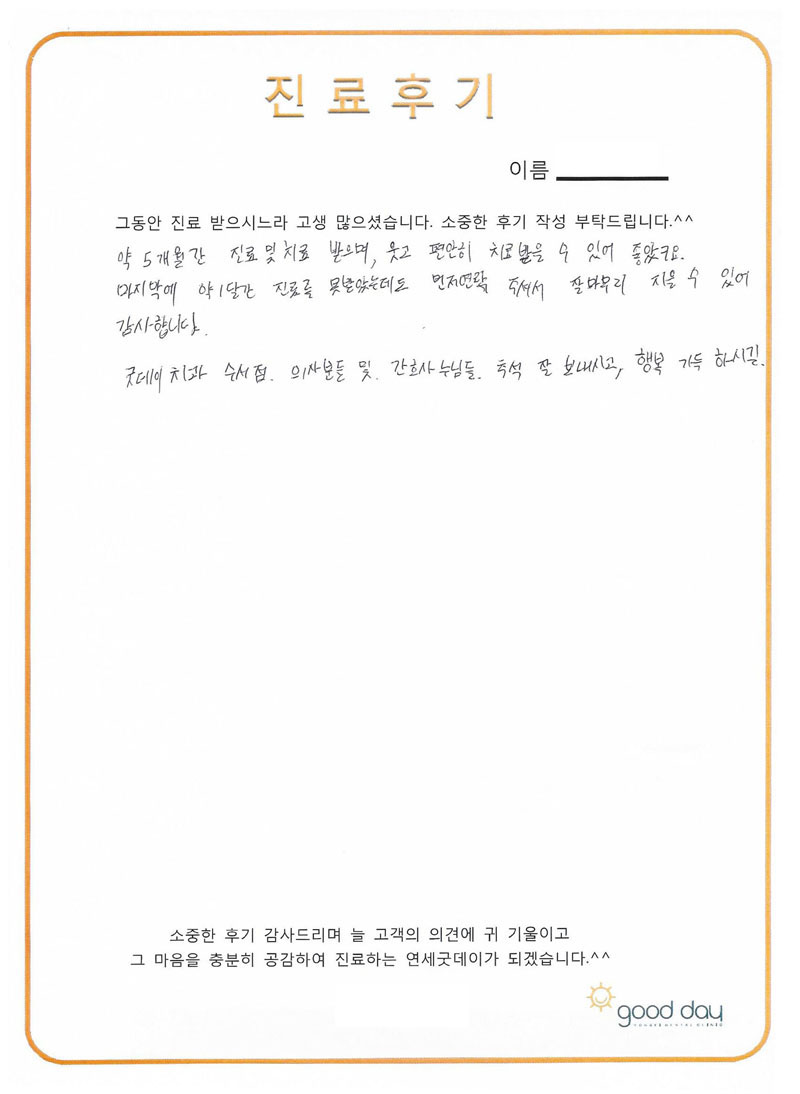 진료후기
이름
그동안 진료 받으시느라 고생 많으셨습니다. 소중한 후기 작성 부탁드립니다.^^
약 5개월간 진료 및 치료 받으며, 웃고 편안히 치료받을 수 있어 좋았고요.
마지막에 약 1달간 진료를 못받았는데도 먼저연락 주셔서 잘마무리 지을 수 있어
감사합니다.
굿데이 치과 수서점. 의사분들 및. 간호사 누님들. 추석 잘 보내시고, 행복 가득 하시길.
소중한 후기 감사드리며 늘 고객의 의견에 귀 기울이고
그 마음을 충분히 공감하여 진료하는 연세굿데이가 되겠습니다.^^
good day
YONSEI DENTAL CLINIC